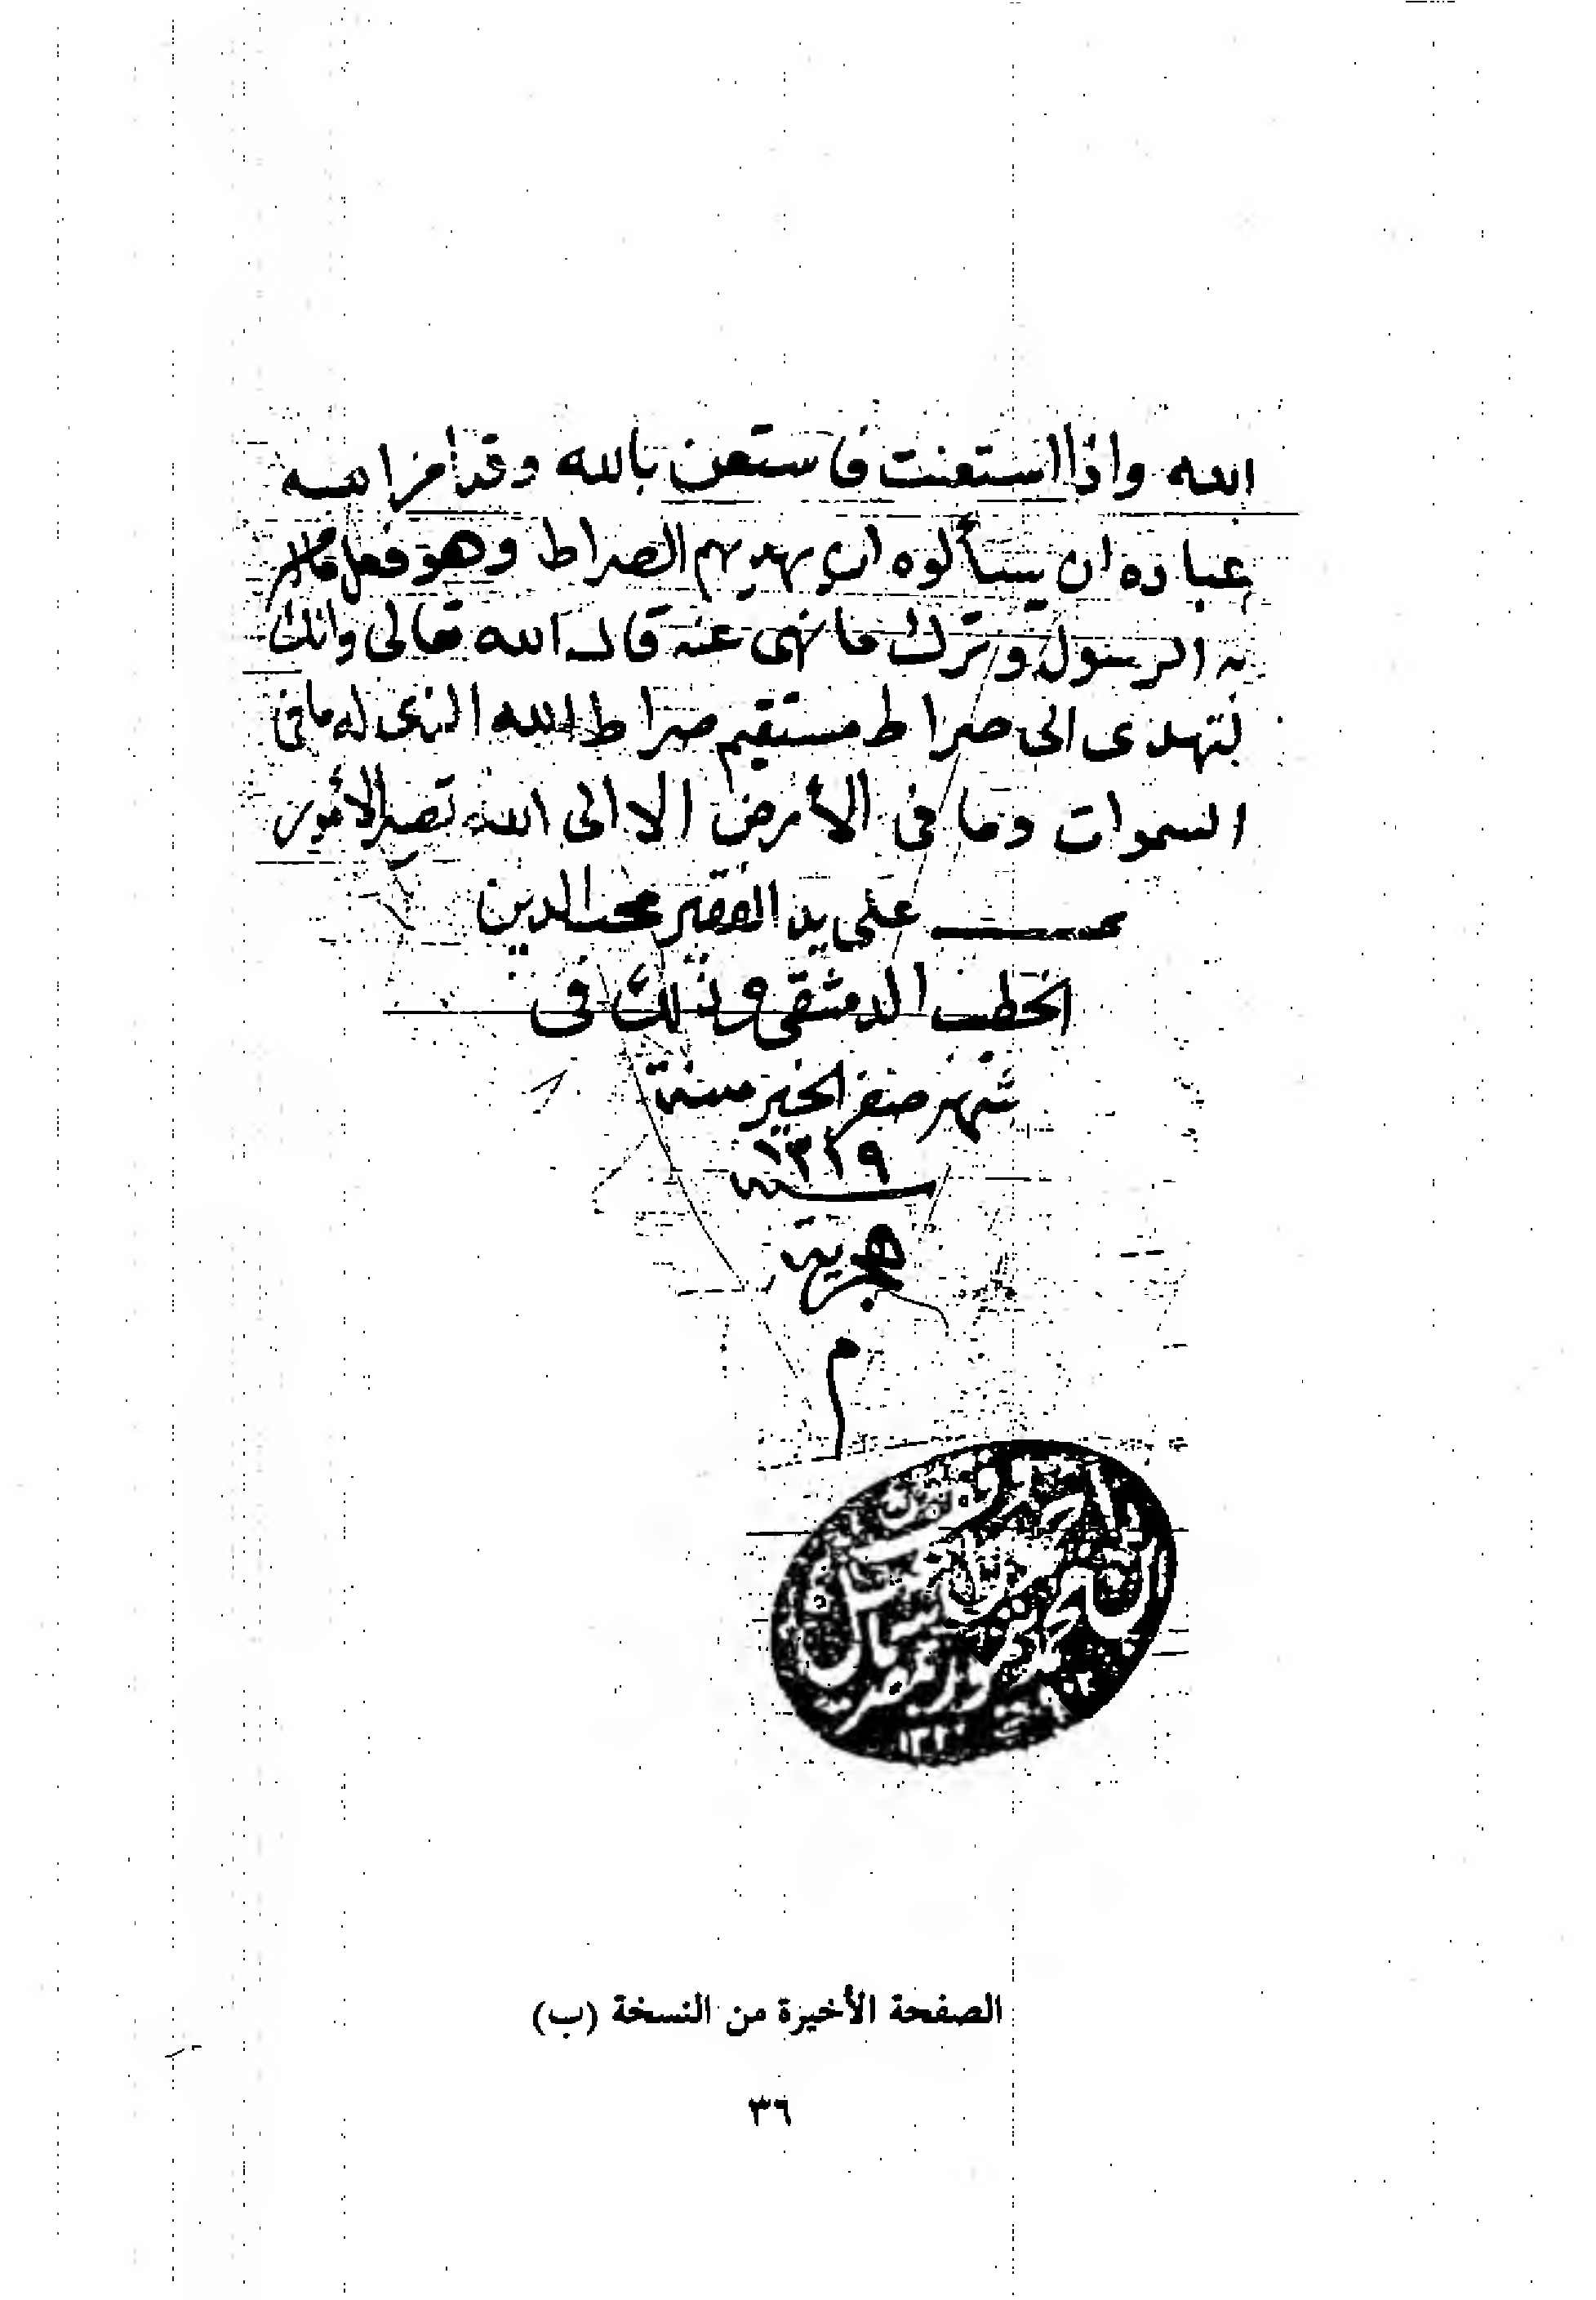 الله واذا استعنت فاستعن بالله وقد امر الله
عباده ان يسألوه ان يهديهم الصراط وهو فعل ما امر
به الرسول وترك ما نهى عنه قال الله تعالى وانك
لتهدى الى صراط مستقيم صراط الله الذى له ما فى
السموات وما فى الأرض الا الى الله تصير الأمور
على يد الفقير محب الدين
الخطيب الدمشقى وذلك فى
شهر صفر الخير سنة
هجرية
م
الصفحة الأخيرة من النسخة (ب)
٣٦